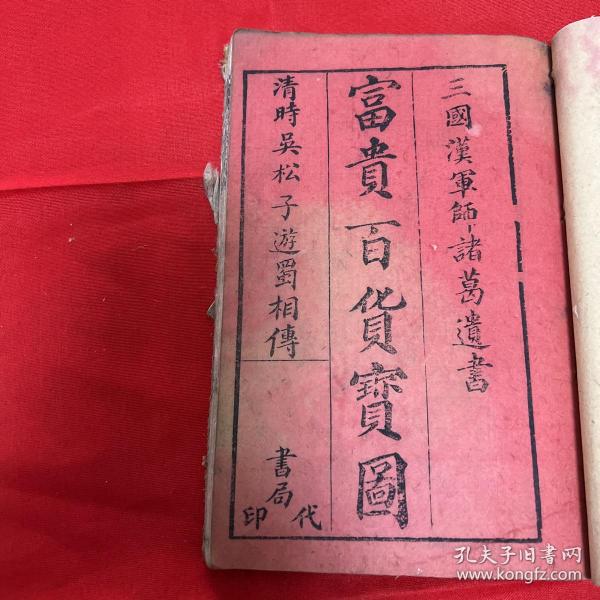 三國漢軍師諸葛遺書
富貴百貨寳圖
清時吳松子遊蜀相傳
書局
代印
孔夫子旧书网
www.kongfz.com